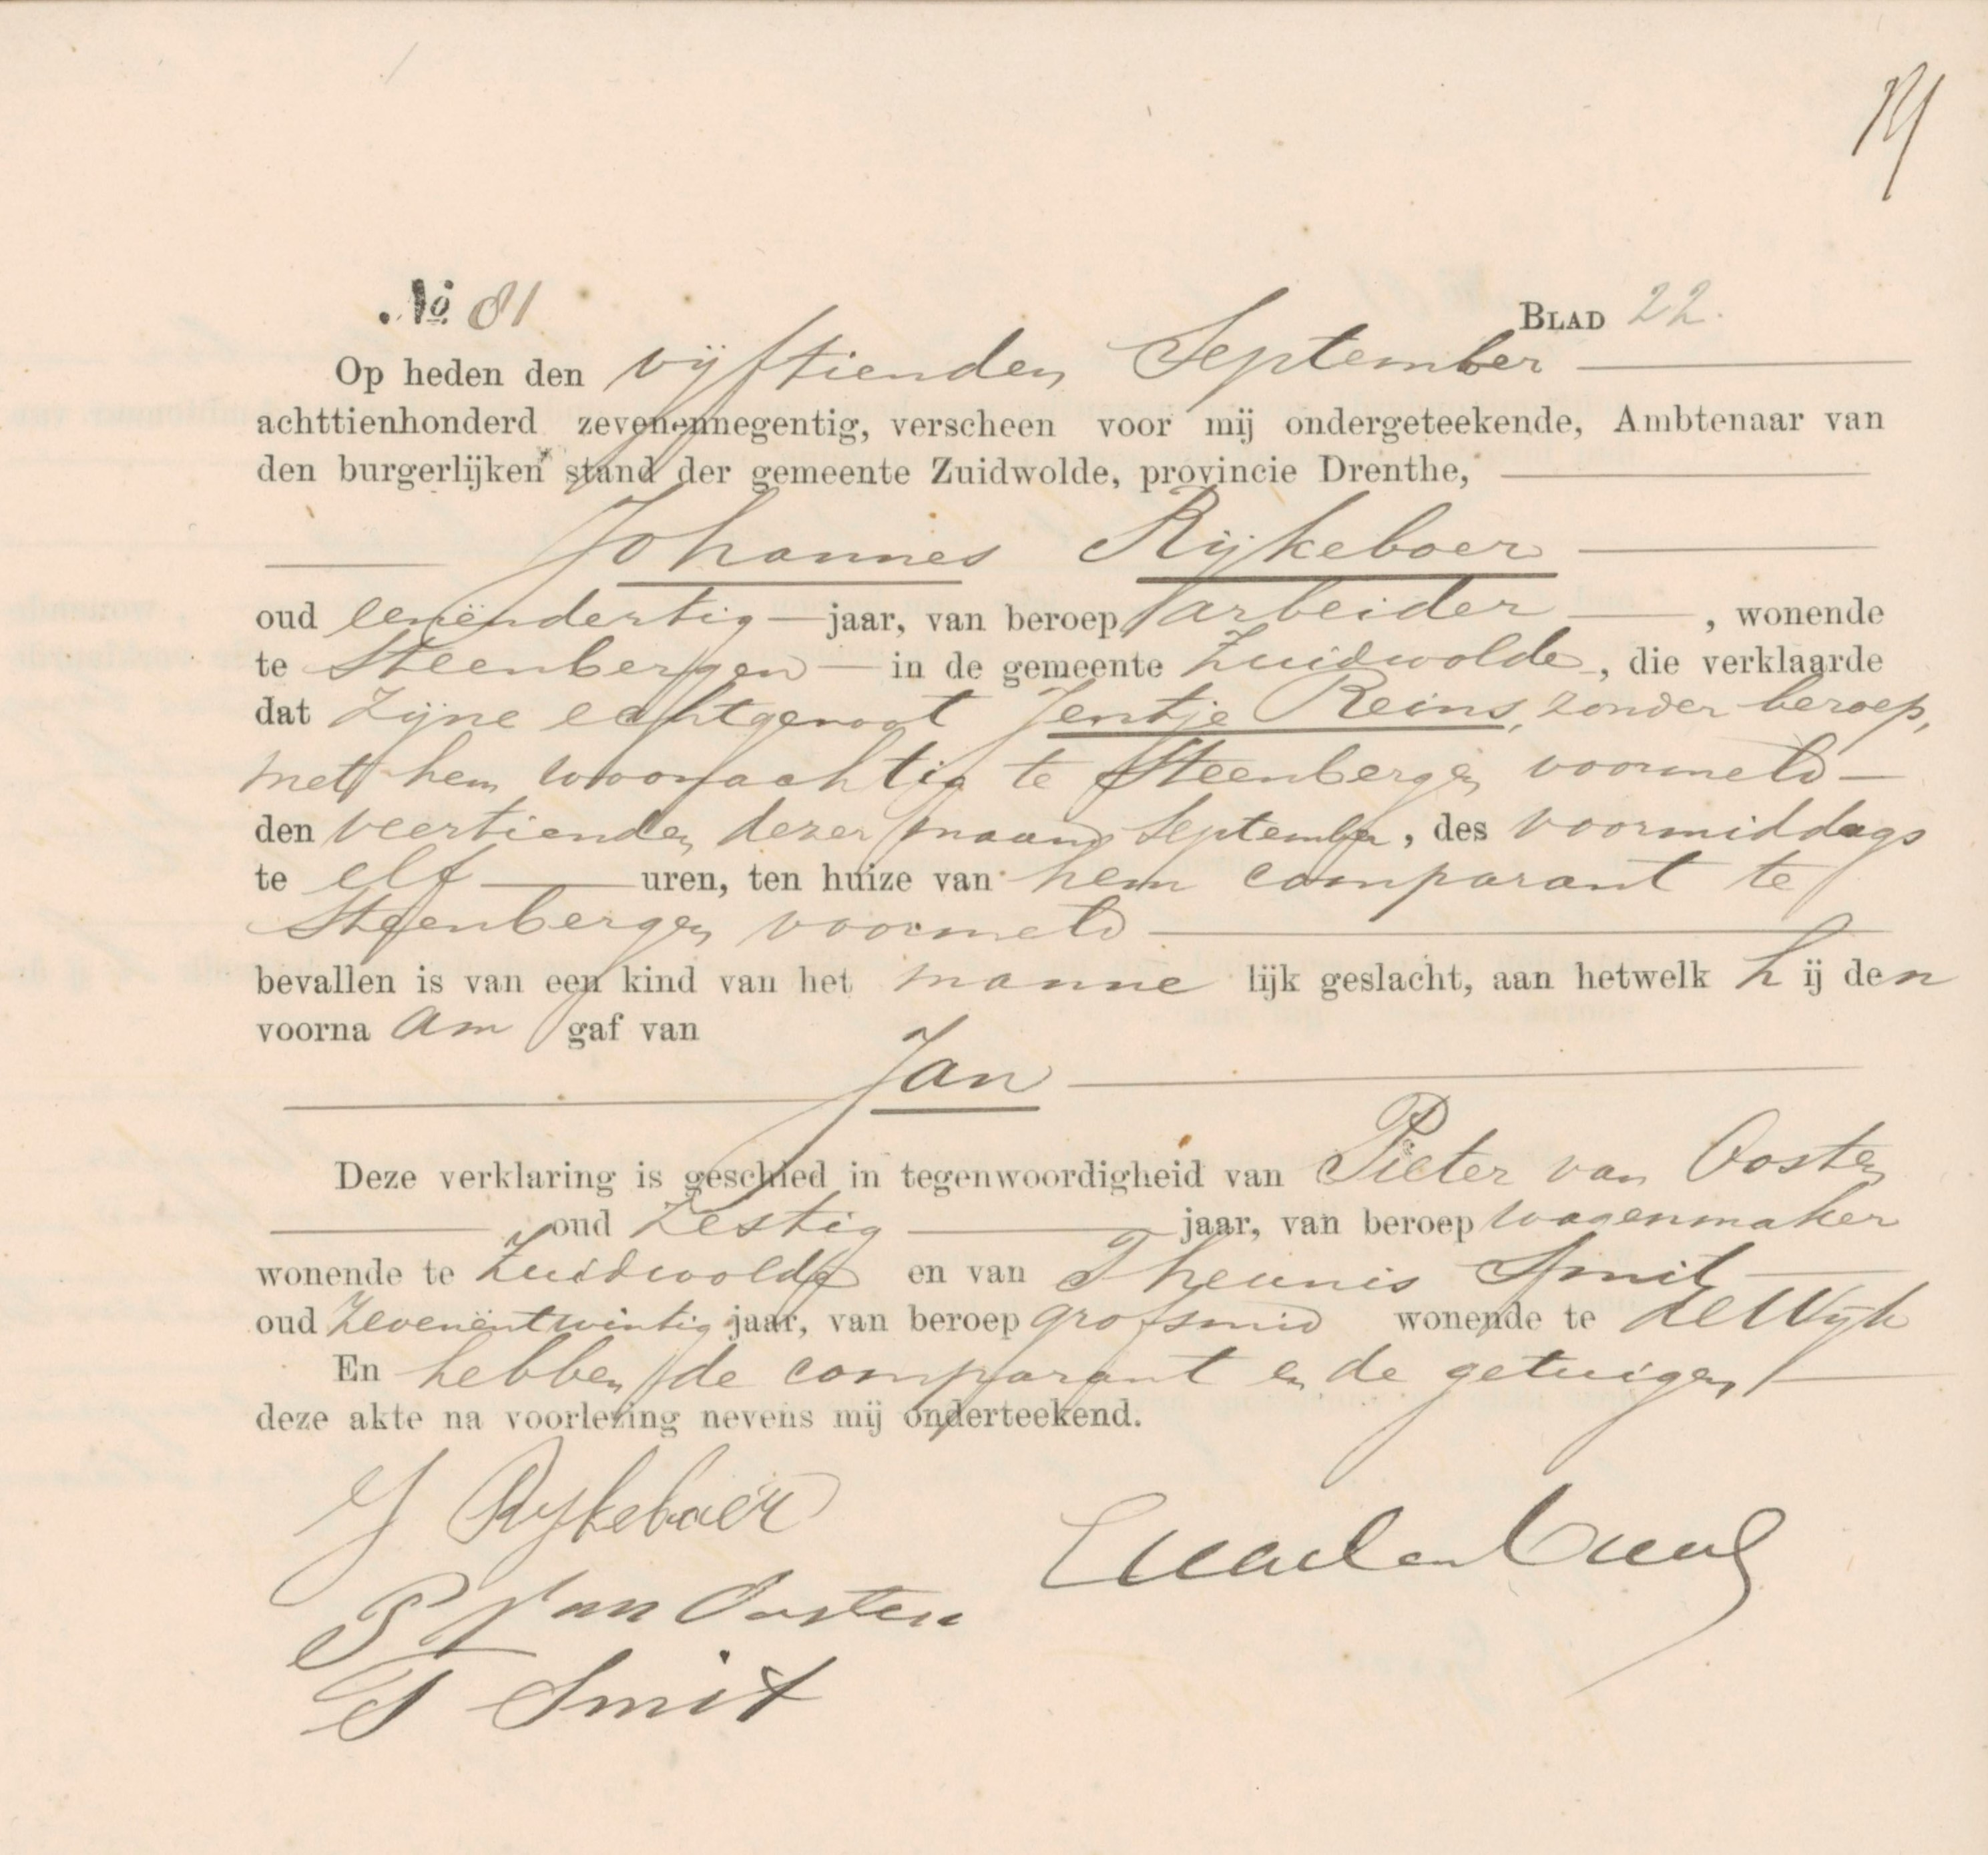 No 81
BLAD 22.
Op heden den vijftienden September
achttienhonderd zevenennegentig, verscheen voor mij ondergeteekende, Ambtenaar van
den burgerlijken stand der gemeente Zuidwolde, provincie Drenthe,
Johannes Rijkeboer
oud eenëndertig jaar, van beroep arbeider, wonende
te Steenbergen in de gemeente Zuidwolde, die verklaarde
dat zijne echtgenoot Jentje Reins, zonder beroep,
met hem woonachtig te Steenbergen voormeld
den veertienden dezer maand September, des voormiddags
te elf uren, ten huize van hem comparant te
Steenbergen voormeld
bevallen is van een kind van het mannelijk geslacht, aan hetwelk hij den
voornaam gaf van
Jan
Deze verklaring is geschied in tegenwoordigheid van Pieter van Oosten
oud zestig jaar, van beroep wagenmaker
wonende te Zuidwolde en van Theunis Smit
oud zevenëntwintig jaar, van beroep grofsmid wonende te de Wijk
En hebben de comparant en de getuigen
deze akte na voorlezing nevens mij onderteekend.
J Rijkeboer
P van Oosten
T Smit